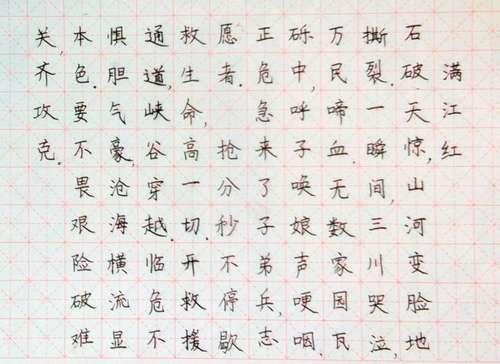 满江红
石破天惊,山河变脸地
撕裂.一瞬间,三川哭泣
万民啼血.无数家园瓦
砾中,呼子唤娘声哽咽
正危急来了子弟兵,志
愿者. 抢分秒不停歇
救生命,高一切.开救援
通道,峡谷穿越.临危不
惧胆气豪,沧海横流显
本色.要不畏艰险破难
关,齐攻克.